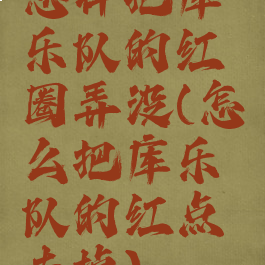 怎样把库
乐队的红
圈弄没(怎
么把库乐
队的红点
去掉)